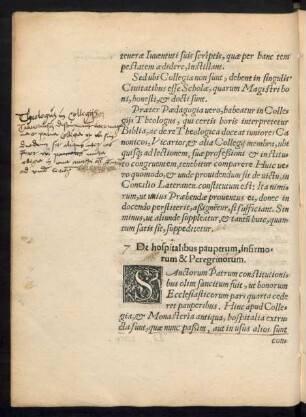 teneræ Iuuentuti suis scriptis, quæ per hanc tem
pestatem ædidere, instillant.
Sed ubi Collegia non sunt, debent in singulis
Ciuitatibus esse Scholæ, quarum Magistri bo
ni, honesti, & docti sunt.
Præter Pædagogia vero, habeatur in Colle-
gijs Theologus, qui certis horis interpretetur
Biblia, ac de re Theologica doceat iuniores Ca
nonicos, Vicarios, & alia Collegij membra, ubi
quisq; ad lectionem, suæ professioni & instituto
conuenientem, tenebitur comparere. Huic ve-
ro quomodo, & unde prouidendum sit de victu, in
Concilio Lateranen. constitutum est: Ita nimi-
rum, ut unius Præbendæ prouentus ei, donec in
docendo perstiterit, assignetur, si sufficiant. Sin
minus, ut aliunde suppleatur, & tantū huic, quan
tum satis sit, suppeditetur.
Theologus in Collegijs
7 De hospitalibus pauperum, Infirmo-
rum & Peregrinorum.
SAnctorum Patrum constitutioni-
bus olim sancitum fuit, ut bonorum
Ecclesiasticorum pars quarta cede
ret pauperibus. Hinc apud Colle-
gia, & Monasteria antiqua, hospitalia extru-
cta sunt, quæ nunc passim, aut in usus alios sunt
con-